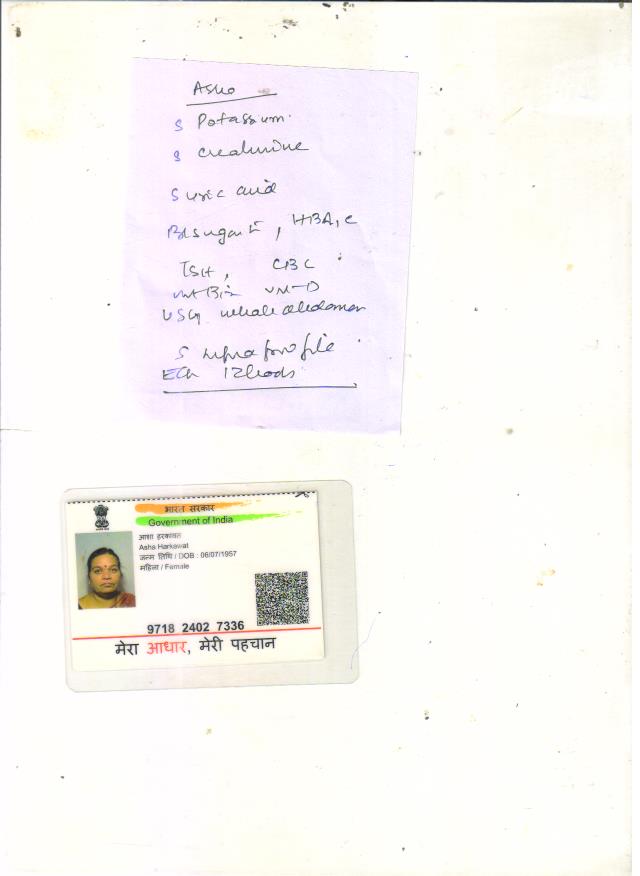 Asha
S Potassium.
S Creatinine
S uric acid
Bl sugar F, HBA1C
TSH, CBC
vit B12 vit-D
USG whole abdomen
S profile
ECG 12 leads
भारत सरकार
Government of India
आशा हरकावत
Asha Harkawat
जन्म तिथि / DOB : 06/07/1957
महिला / Female
9718 2402 7336
मेरा आधार, मेरी पहचान